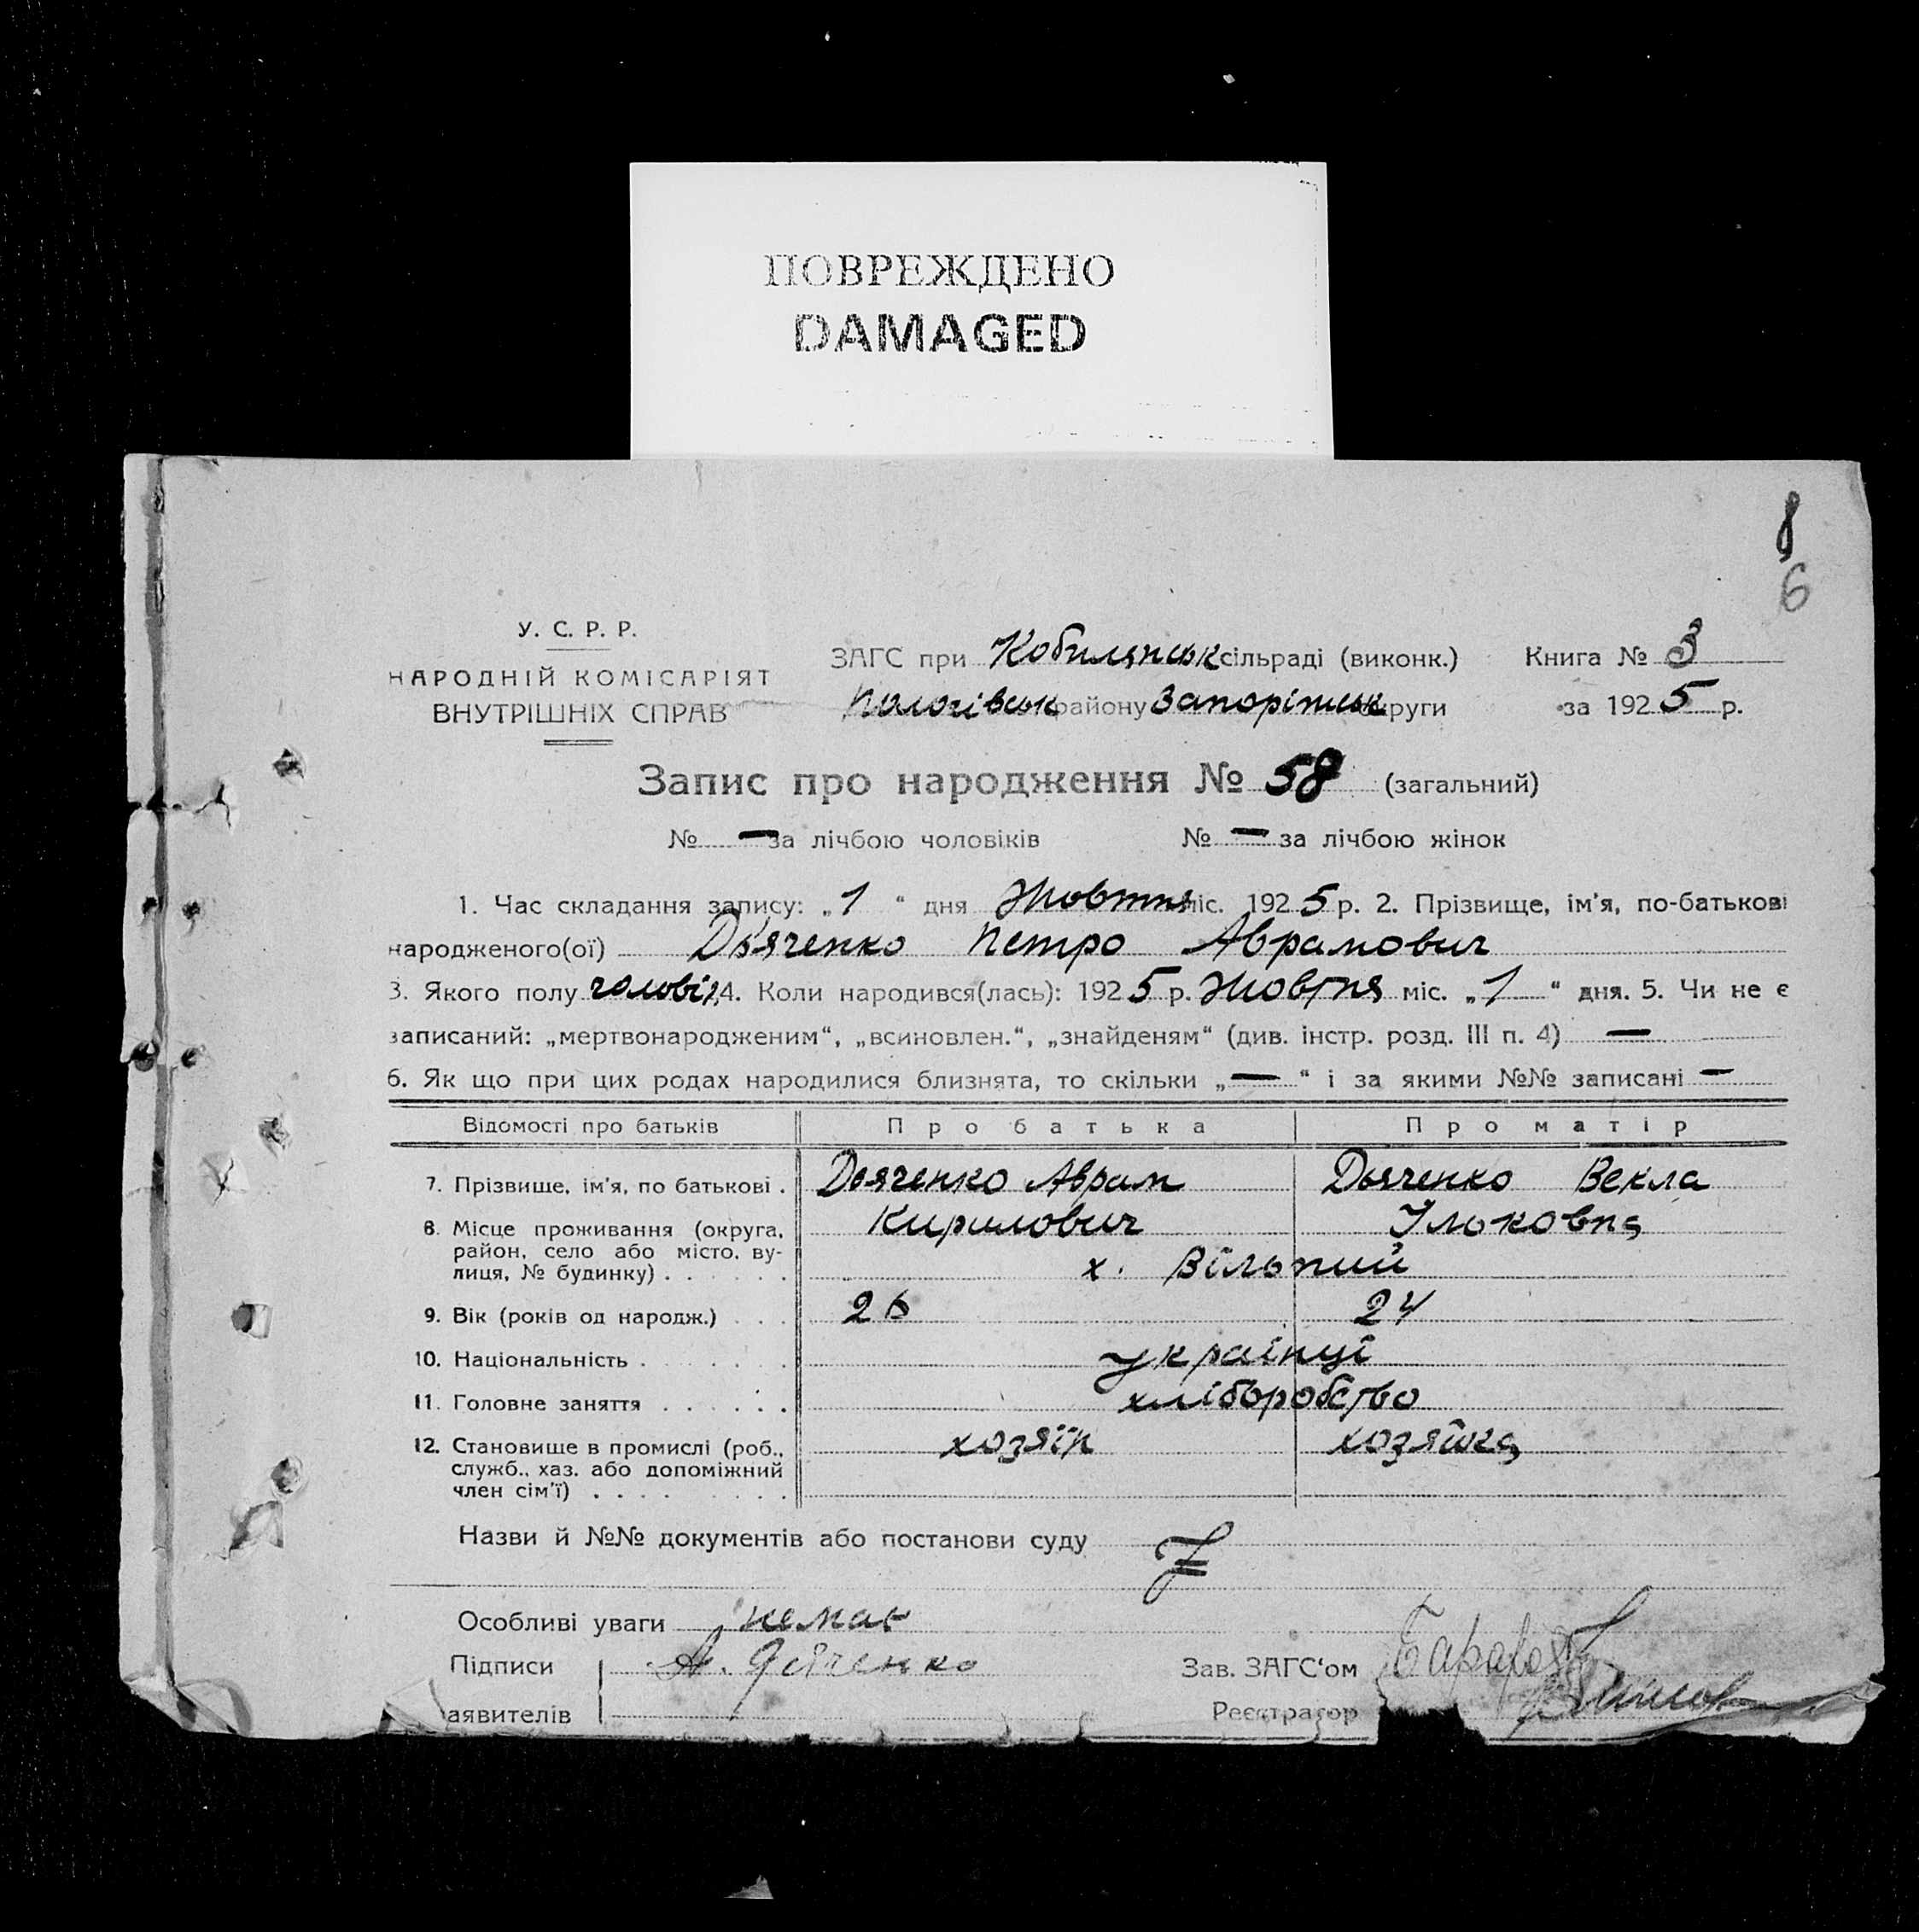 ПОВРЕЖДЕНО
DAMAGED
8
6
У. С. Р. Р.
НАРОДНІЙ КОМІСАРІЯТ
ВНУТРІШНІХ СПРАВ
ЗАГС при Кобилянськ сільраді (виконк.) Книга № 3
Пологівськ району Запоріжськ округи за 1925 р.
Запис про народження № 58 (загальний)
№ — за лічбою чоловіків № — за лічбою жінок
1. Час складання запису: „1“ дня Жовтня міс. 1925 р. 2. Прізвище, ім'я, по-батькові
народженого(ої) Дьяченко Петро Аврамович
3. Якого полу чоловіч. 4. Коли народився(лась): 1925 р. Жовтня міс. „1“ дня. 5. Чи не є
записаний: „мертвонародженим“, „всиновлен.“, „знайденям“ (див. інстр. розд. III п. 4) —
6. Як що при цих родах народилися близнята, то скільки „—“ і за якими №№ записані —
Відомості про батьків Про батька Про матір
7. Прізвище, ім'я, по батькові . Дьяченко Аврам Дьяченко Векла
8. Місце проживання (округа, Кирилович Ільковна
район, село або місто, ву-
лиця, № будинку) . . . . . . х. Вільний
9. Вік (років од народж.) . . . 26 24
10. Національність . . . . . . українці
11. Головне заняття . . . . . . хліборобство
12. Становище в промислі (роб., хозяїн хозяйка
служб., хаз. або допоміжний
член сім'ї) . . . . . . .
Назви й №№ документів або постанови суду
Особливі уваги немає
Підписи А. Дяченко Зав. ЗАГС'ом
аявителів Реєстратор